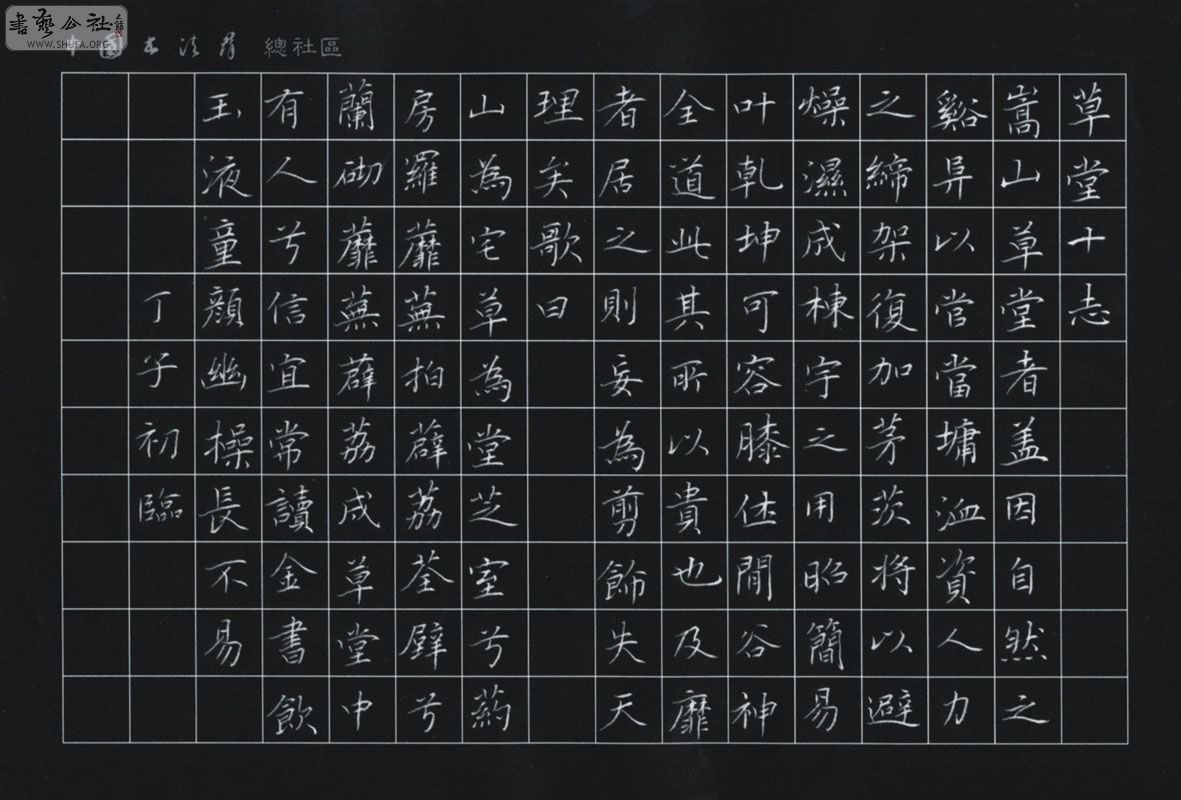 書藝公社
WWW.SHUFA.ORG
中國書法群 總社區
草堂十志
嵩山草堂者盖因自然之
谿阜以當墉洫資人力
之締架復加茅茨將以避
燥濕成棟宇之用昭簡易
叶乹坤可容膝休閒谷神
全道此其所以貴也及靡
者居之則妄為剪飾失天
理矣歌曰
山為宅草為堂芝室兮葯
房羅蘼蕪拍薜荔荃壁兮
蘭砌蘼蕪薜荔成草堂中
有人兮信宜常讀金書飲
玉液童顏幽操長不易
丁子初臨